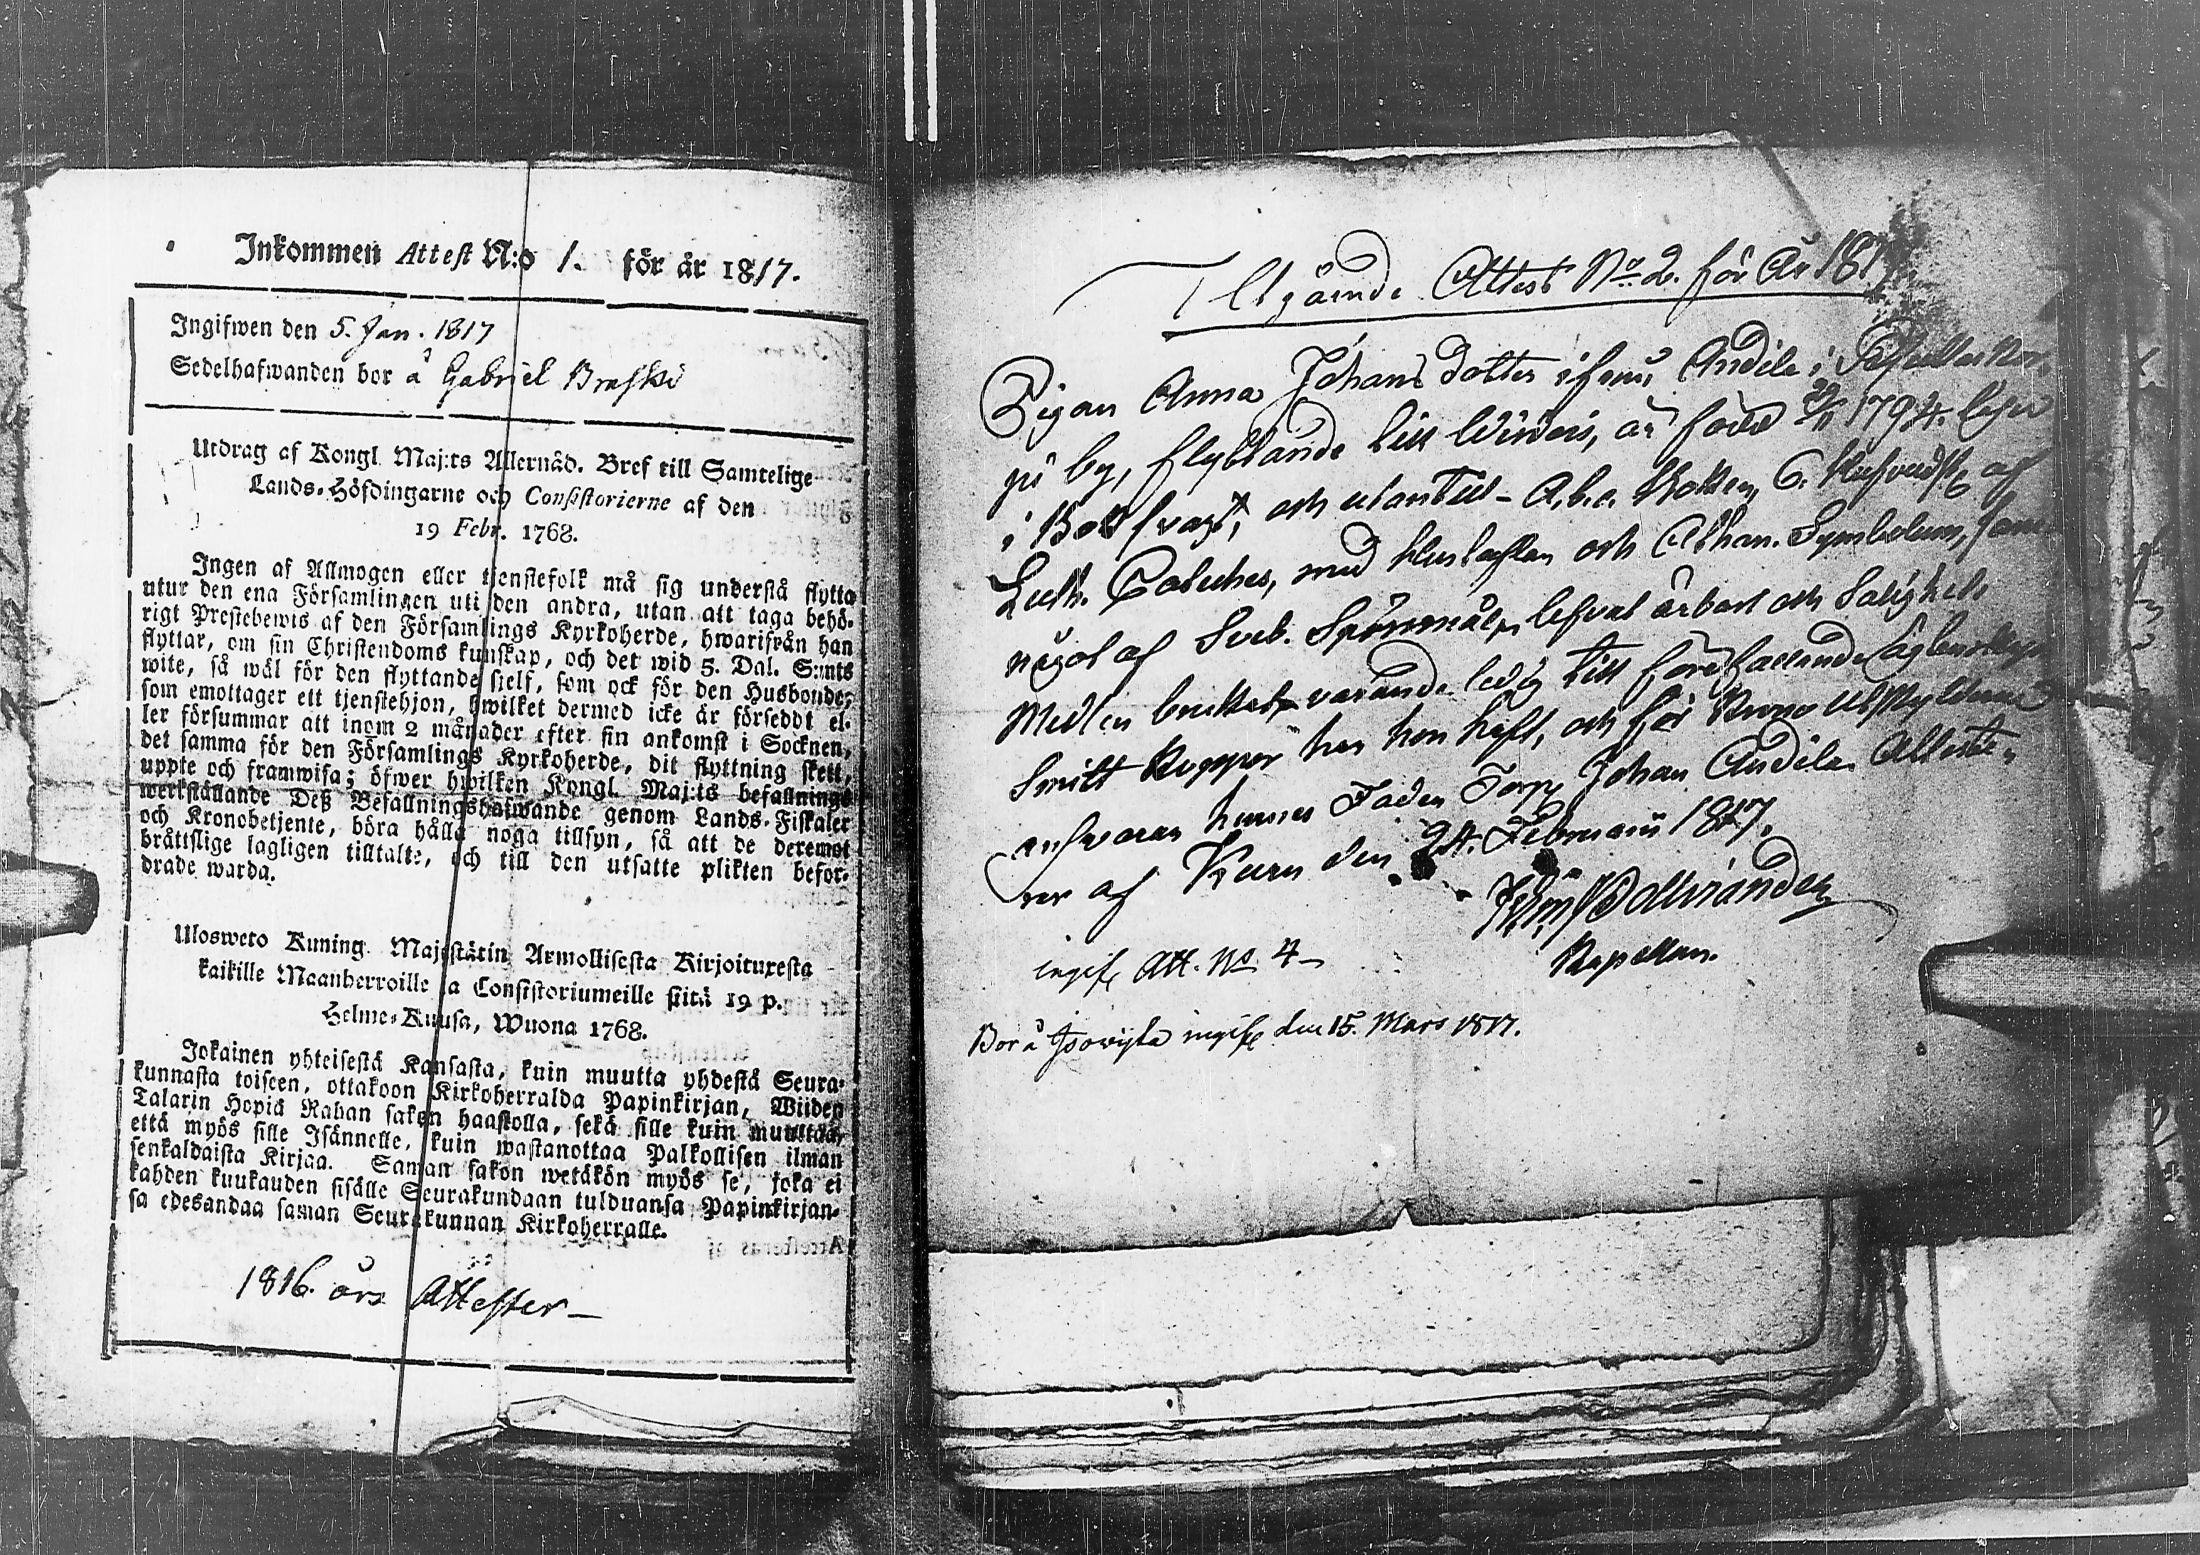 Inkommen Attest N:o 1. för år 1817.
Ingifwen den 5. Jan. 1817
Sedelhafwanden bor å Gabriel Braski
Utdrag af Kongl. Maj:ts Allernåd. Bref till Samtelige
Lands-Höfdingarne och Consistorierne af den
19 Febr. 1768.
Ingen af Allmogen eller tjenstefolk må sig understå flytta
utur den ena Församlingen uti den andra, utan att taga behö-
rigt Prestebewis af den Församlings Kyrkoherde, hwarifrån han
flyttar, om sin Christendoms kunskap, och det wid 5. Dal. S:mts
wite, så wäl för den flyttande sielf, som ock för den Husbonde,
som emottager ett tjenstehjon, hwilket dermed icke är försedt el-
ler försummar att inom 2 månader efter sin ankomst i Socknen,
det samma för den Församlings Kyrkoherde, dit flyttning skett,
uppte och framwisa; öfwer hwilken Kongl. Maj:ts befallnings
werkställande Deß Befallningshafwande genom Lands-Fiskaler
och Kronobetjente, böra hålla noga tillsyn, så att de deremot
bråttslige lagligen tilltalte, och till den utsatte plikten befor-
drade warda.
Ulosweto Kuning. Majestätin Armollisesta Kirjoituxesta
kaikille Maanherroille ja Consistoriumeille siitä 19 p.
Helme-Kuusa, Wuona 1768.
Jokainen yhteisestä Kansasta, kuin muutta yhdestä Seura-
kunnasta toiseen, ottakoon Kirkoherralda Papinkirjan, Wiiden
Talarin Hopiä Rahan sakon haastolla, sekä sille kuin muuttaa,
että myös sille Isännelle, kuin wastanottaa Palkollisen ilman
senkaldaista Kirjaa. Saman sakon wetäkön myös se, joka ei
kahden kuukauden sisälle Seurakundaan tulduansa Papinkirjan-
sa edesandaa saman Seurakunnan Kirkoherralle.
1816. års Attester
Utgående Attest No 2. för År 181
Pigan Anna Johans dotter ifrån Andela i
på by, flyttande till Wirdois, är född 1794. läser
i Bok svagt, och utantill A.b.c. Boken, 6. Hufvudst. af
Luth. Catechis, med Hustaflan och Athan. Symbolum, samt
något af Sveb. Spörsmål, lefvat ärbart och Salighets
Medlen brukat, varande ledig till förefallande
Smitt Koppor har hon haft, och för Krono Utskylderna
ansvarar hennes Fader Torp. Johan Andela. Atteste-
rar af Kuru den 24. Februarii 1817.
Kapellan.
ingif. Att. No 4
Bor å ingif. den 15. Mars 1817.